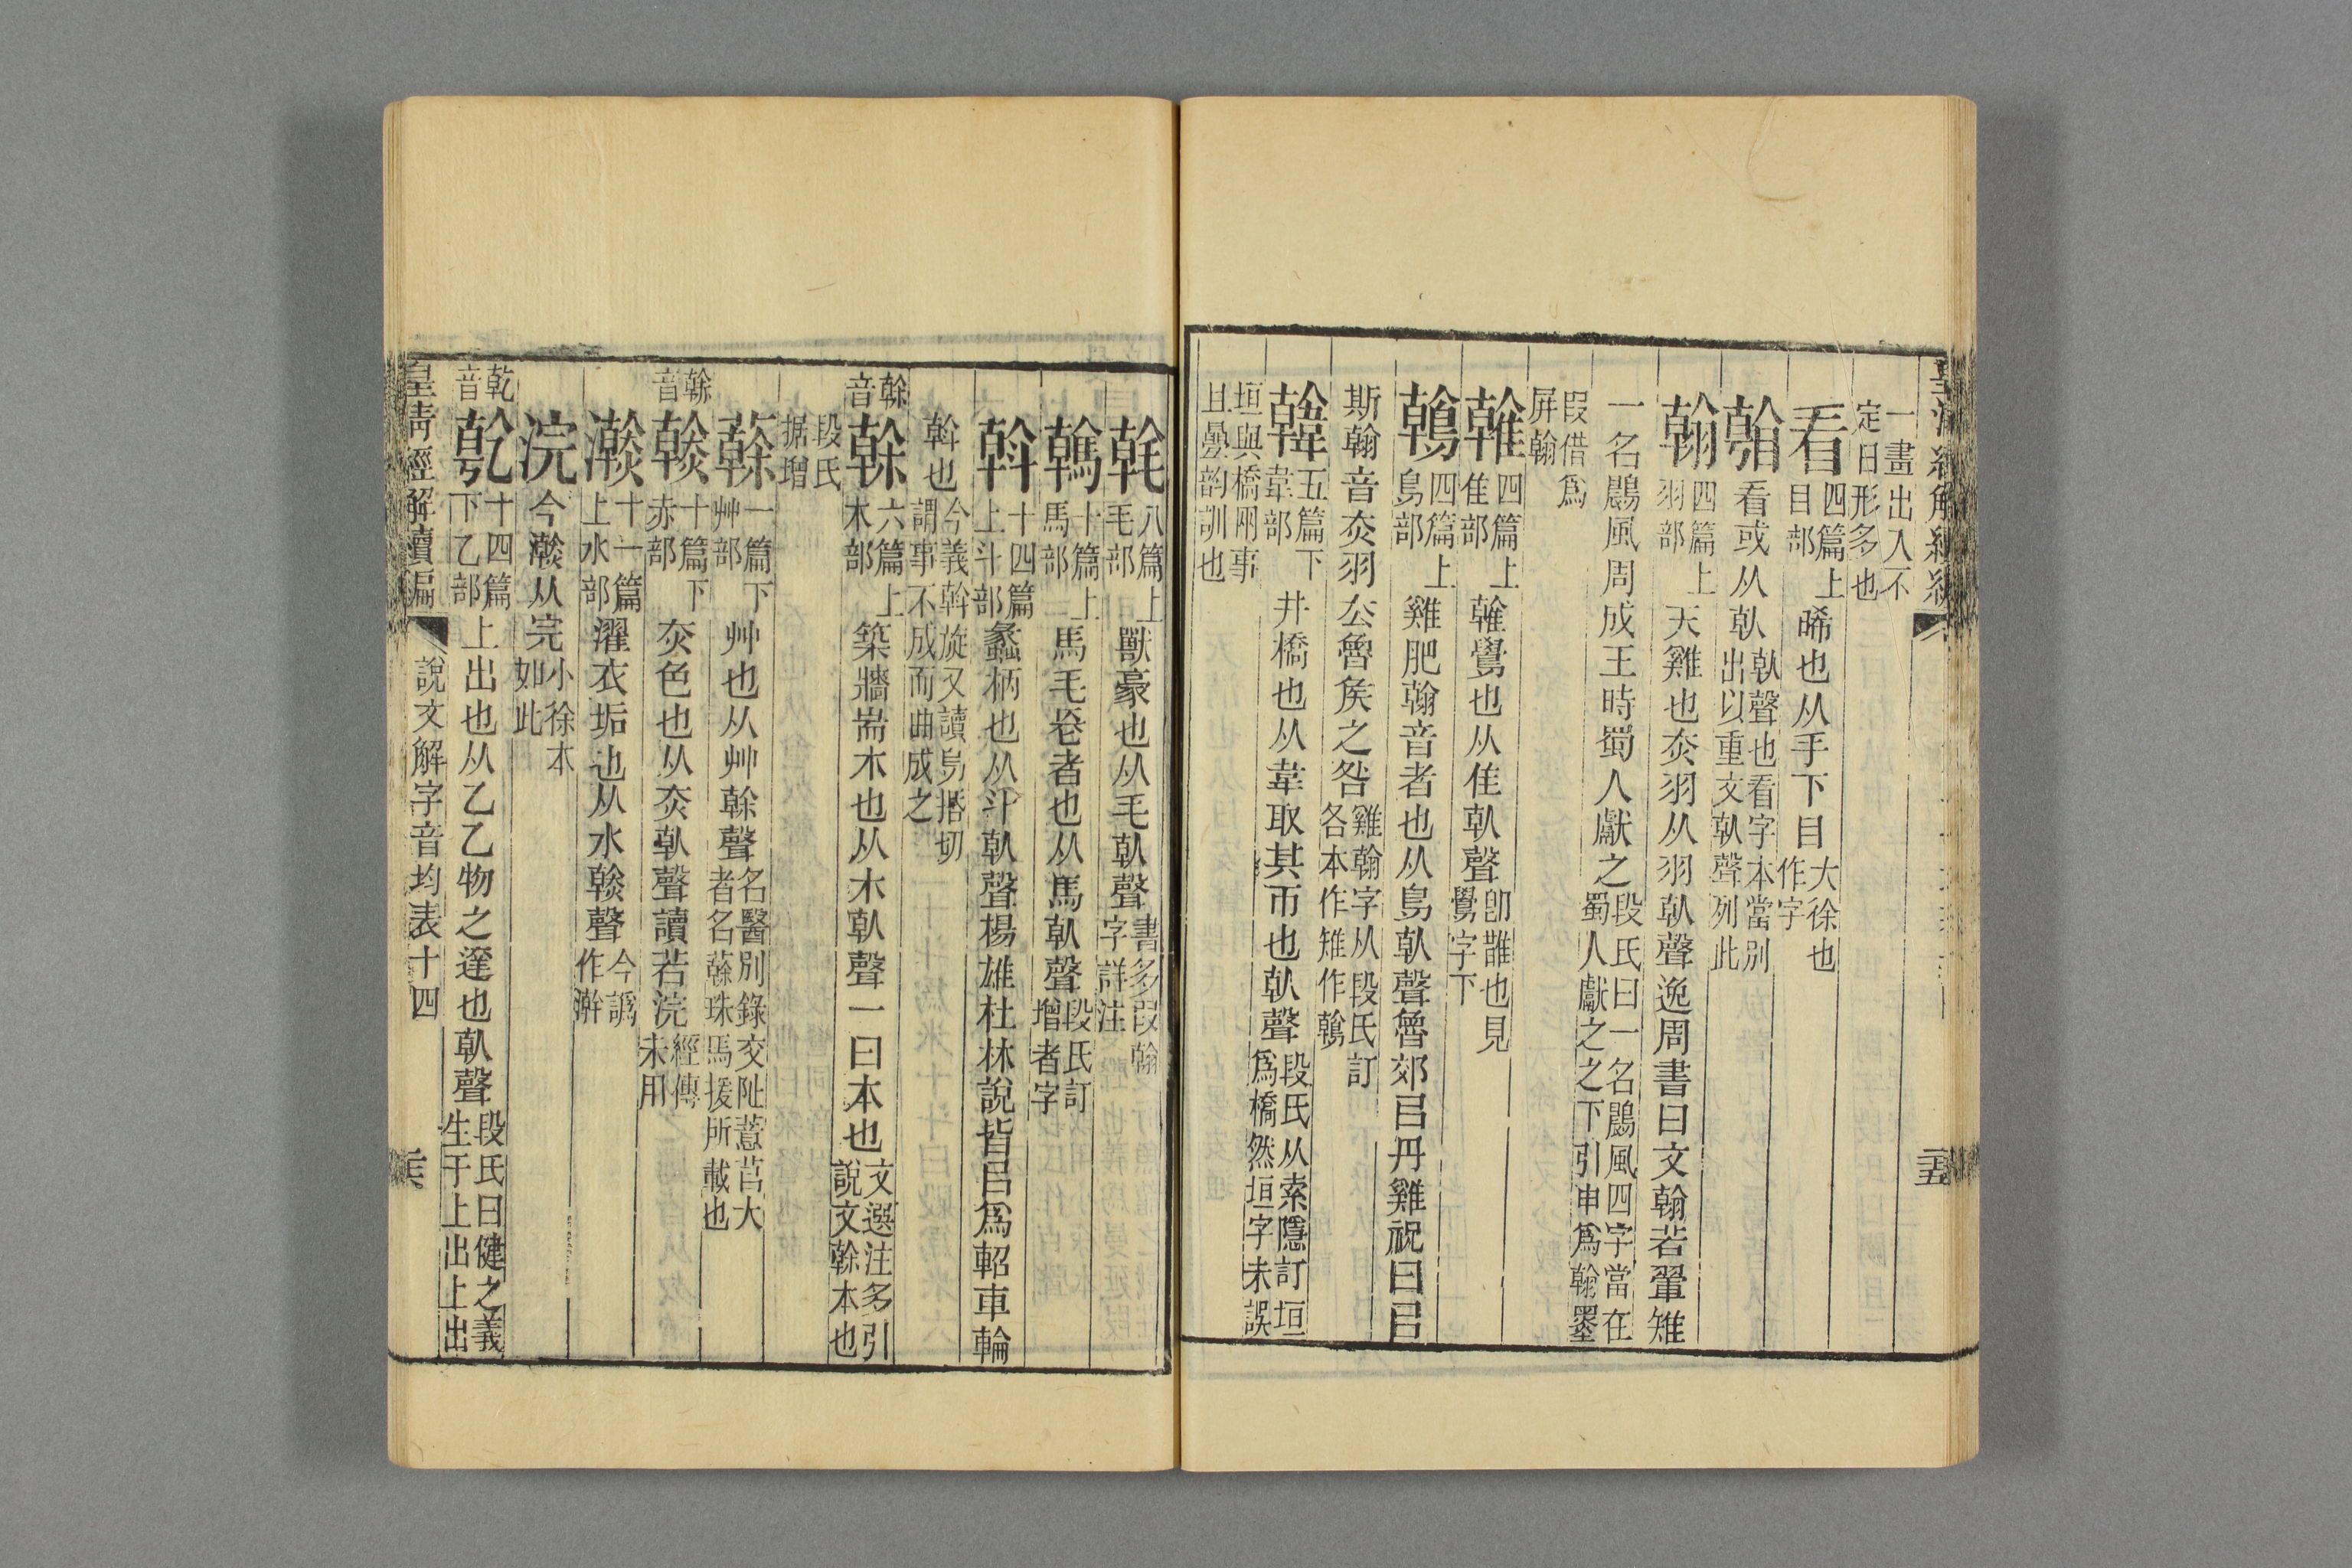 一畫出入不
定日形多也
看四篇上目部睎也从手下目大徐也作字
𥉟看或从倝倝聲也看字本當別出以重文倝聲列此
翰四篇上羽部天雞也𤆍羽从羽倝聲逸周書曰文翰若翬雉
一名鷐風周成王時蜀人獻之段氏曰一名鷐風四字當在蜀人獻之之下引申爲翰墨
叚借爲屛翰
雗四篇上隹部雗鷽也从隹倝聲卽䧿也見鷽字下
鶾四篇上鳥部雞肥翰音者也从鳥倝聲魯郊㠯丹雞祝曰㠯
斯翰音𤆍羽去魯矦之咎雞翰字从段氏訂各本作雉作鶾
韓五篇下韋部井橋也从韋取其帀也倝聲段氏从索隱訂垣爲橋然垣字未誤
垣與橋兩事且㬪韵訓也
毛部八篇上獸豪也从毛倝聲書多叚翰字詳注
馬部十篇上馬毛𠔉者也从馬倝聲段氏訂增者字
斡十四篇上斗部蠡柄也从斗倝聲楊雄杜林說皆㠯爲軺車輪
斡也今義斡旋又讀烏捾切謂事不成而曲成之
榦音
榦六篇上木部築牆耑木也从木倝聲一曰本也文選注多引說文榦本也
段氏据增
一篇下艸部艸也从艸榦聲名醫別錄交阯薏苢大者名䕾珠馬援所載也
榦音
十篇下赤部赤色也从赤倝聲讀若浣經傳未用
十一篇上水部濯衣垢也从水𦠄聲今譌作澣
浣今瀚从完小徐本如此
乾音
乾十四篇下乙部上出也从乙乙物之達也倝聲段氏曰健之義生于上出上出
皇淸經解續編
說文解字音均表十四